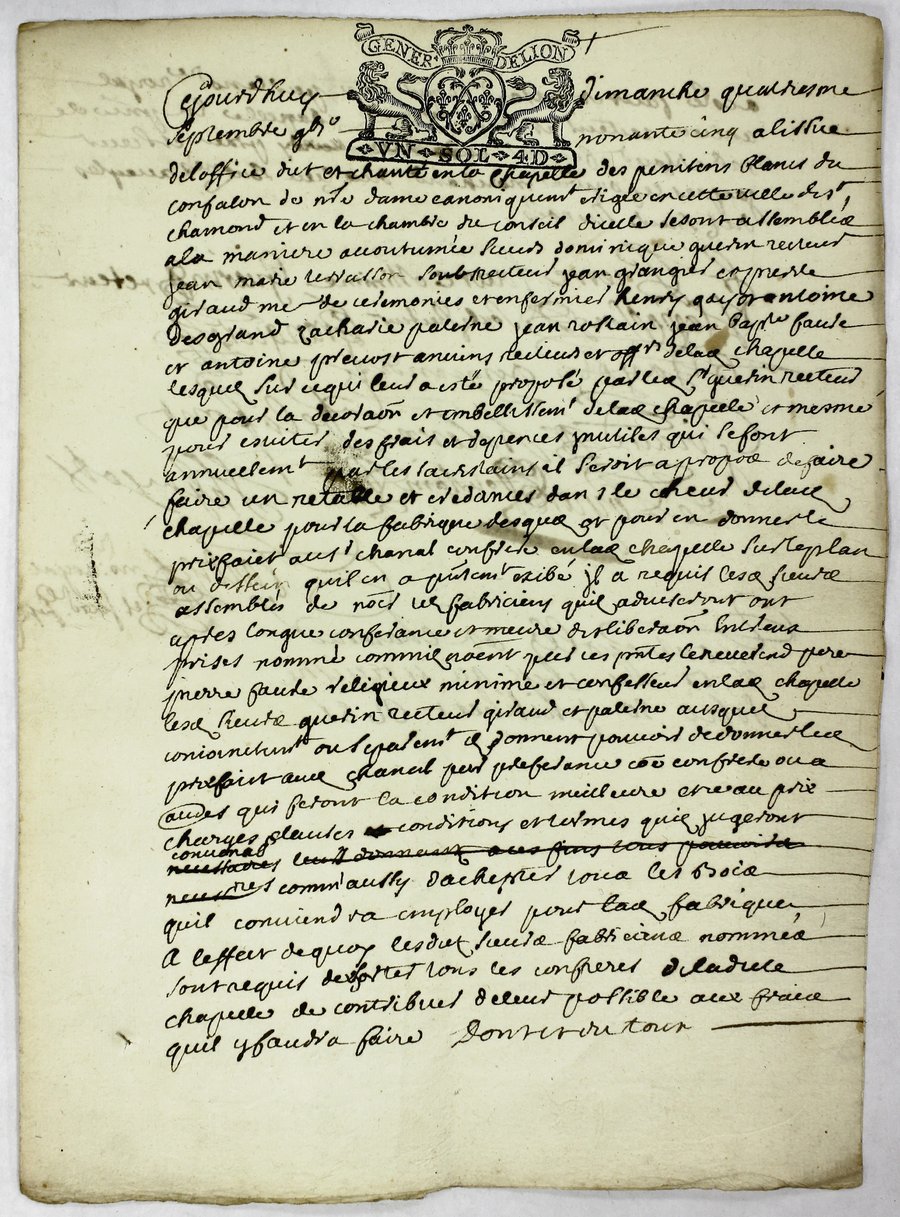 GENER DELION
VN SOL 4D
Cejourdhuy dimanche quatriesme
septembre nonante cinq a lissue
deloffice dict et chanté en la chapelle des penitens blancs du
confalon de nre dame canoniquent erigée en cette ville de st
chamond et en la chambre du conseil dicelle se sont assemblés
a la maniere accoutumée sieurs dominicque guerin recteur
jean marie terrasson soubrecteur jean grangier et pierre
giraud me de ceremonies et enfermier henry gayot antoine
desgrand zacharie paleine jean rostain jean bapte faure
et antoine prevost antiens recteurs et offrs de lad chapelle
lesquels sur ce qui leur a esté proposé par led sr guerin recteur
que pour la decoraon et embellissent de lad chapelle et mesme
pour esviter des frais et depences inutiles qui se font
annuellemt par les sacristains il seroit a propos de faire
faire un retable et credances dans le cheur de lad
chapelle pour la fabrique desquels et pour en donner le
prixfaict au sr chanal confrere en lad chapelle sur le plan
ou dessein quil en a prntemt exibé il a requis lesd sieurs
assemblés de les fabriciens quil adviseront ont
apres longue conferance et meure deliberaon entreux
prises nommé par ces pntes le reverend pere
pierre faure religieux minime et confesseur en lad chapelle
lesd sieurs guerin recteur giraud et paleine ausquels
conjoinctemt ou separemt il donnent pouvoir de donner led
prixfaict aud chanal par preferance coe confrere ou a
autres qui feront la condition meilleure et ce au prix
charges clauses conditions et termes quils jugeront
convenables
necessaires leurs donnant a ces fins tous pouvoirs
necessres comm aussy dachepter tous les bois
quil conviendra employer pour lad fabrique
A leffect de quoy lesdict sieurs fabriciens nommés
sont requis dexorter tous les confreres de ladicte
chapelle de contribuer de leur possible aux frais
quil y faudra faire Dont et du tout